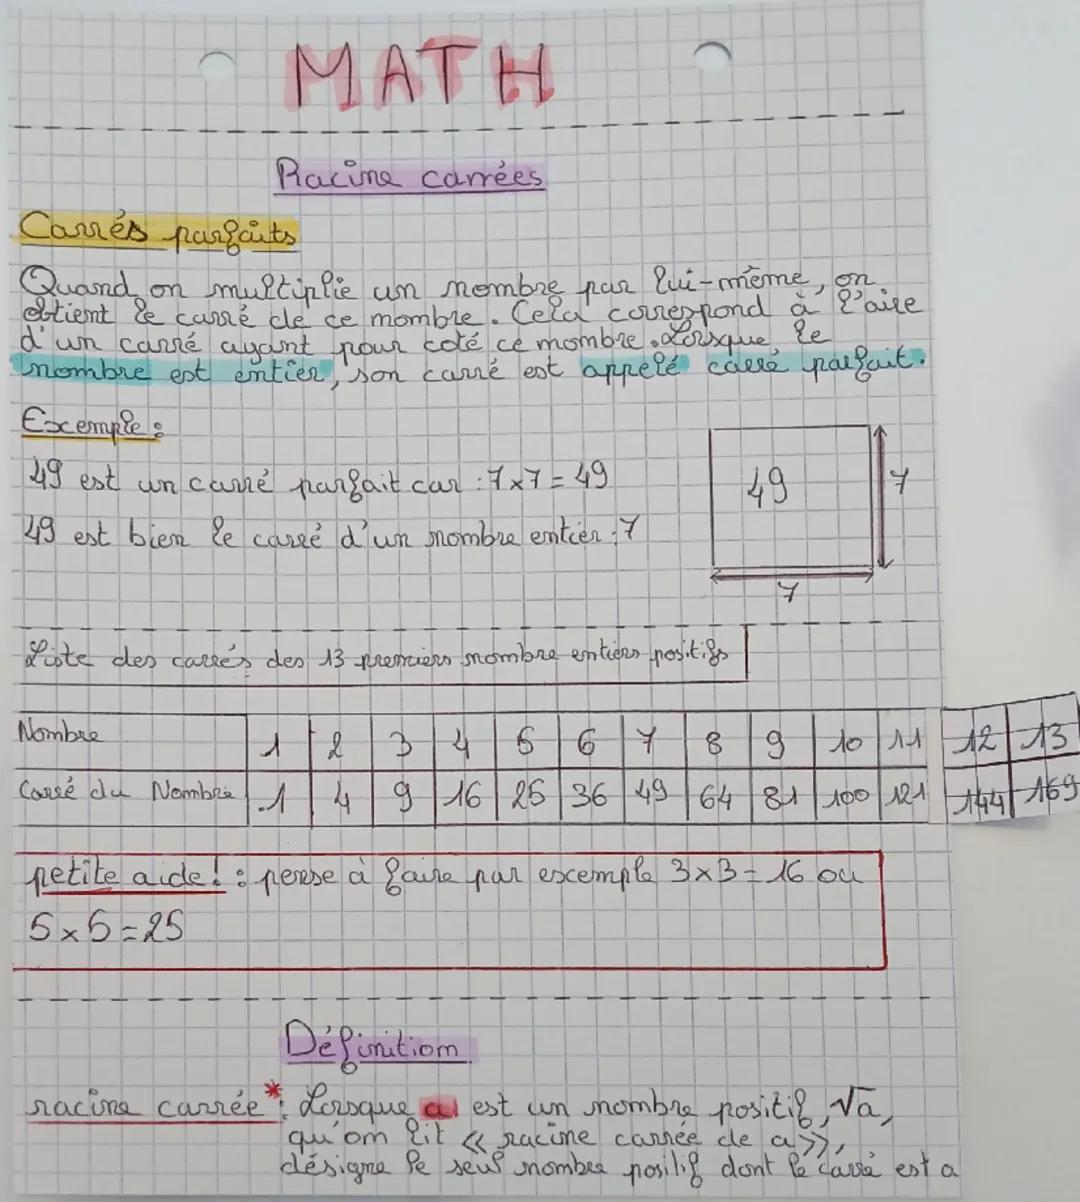 MATH
Racine carrées
Carrés parfaits
Quand on multiplie un nombre par lui-même, on
obtient le carré de ce nombre. Cela correspond à l'aire
d'un carré ayant pour coté ce nombre. Lorsque le
nombre est entier, son carré est appelé carré parfait.
Excemple :
49 est un carré parfait car : 7x7 = 49
49
7
49 est bien le carré d'un nombre entier : 7
7
Liste des carrés des 13 premiers nombre entiers positifs
Nombre 1 2 3 4 5 6 7 8 9 10 11 12 13
Carré du Nombre 1 4 9 16 25 36 49 64 81 100 121 144 169
petite aide ! : pense à faire par excemple 3x3 = 16 ou
5x5 = 25
Définition
racine carrée* : Lorsque a est un nombre positif, √a,
qu'on lit « racine carrée de a »,
désigne le seul nombre positif dont le carré est a